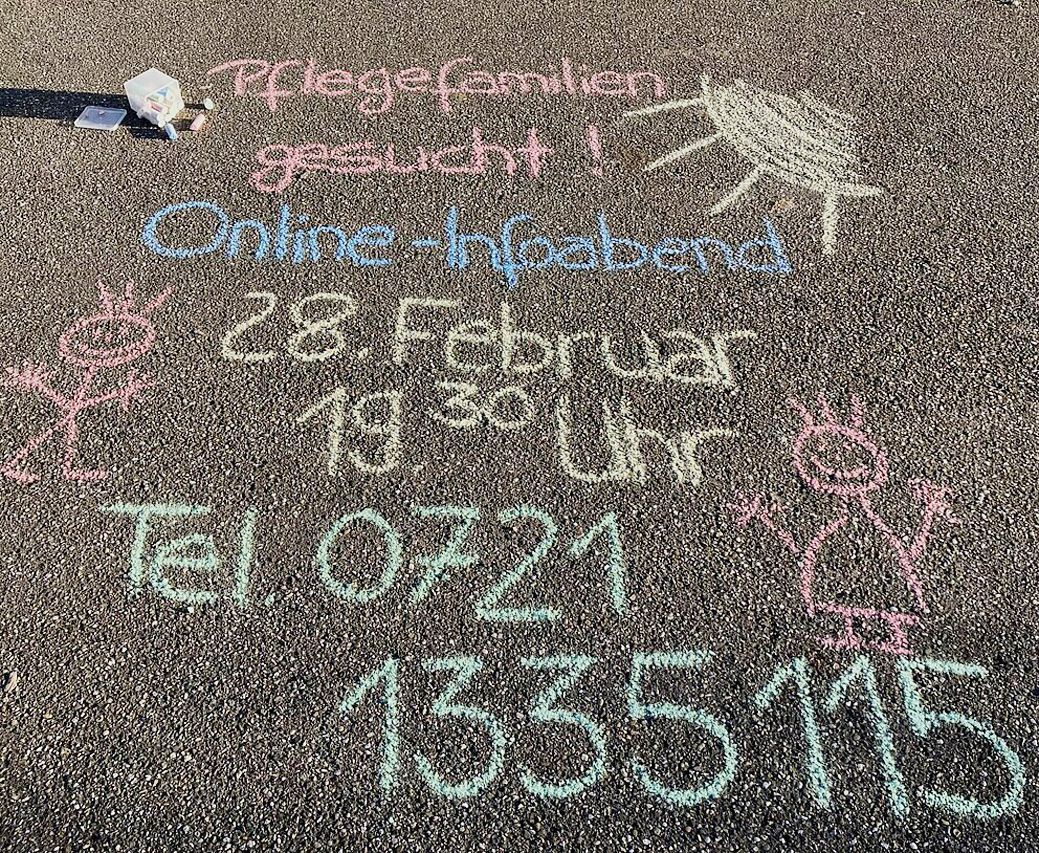 Pflegefamilien
gesucht!
Online-Infoabend
28. Februar
19.30 Uhr
Tel. 0721
1335115